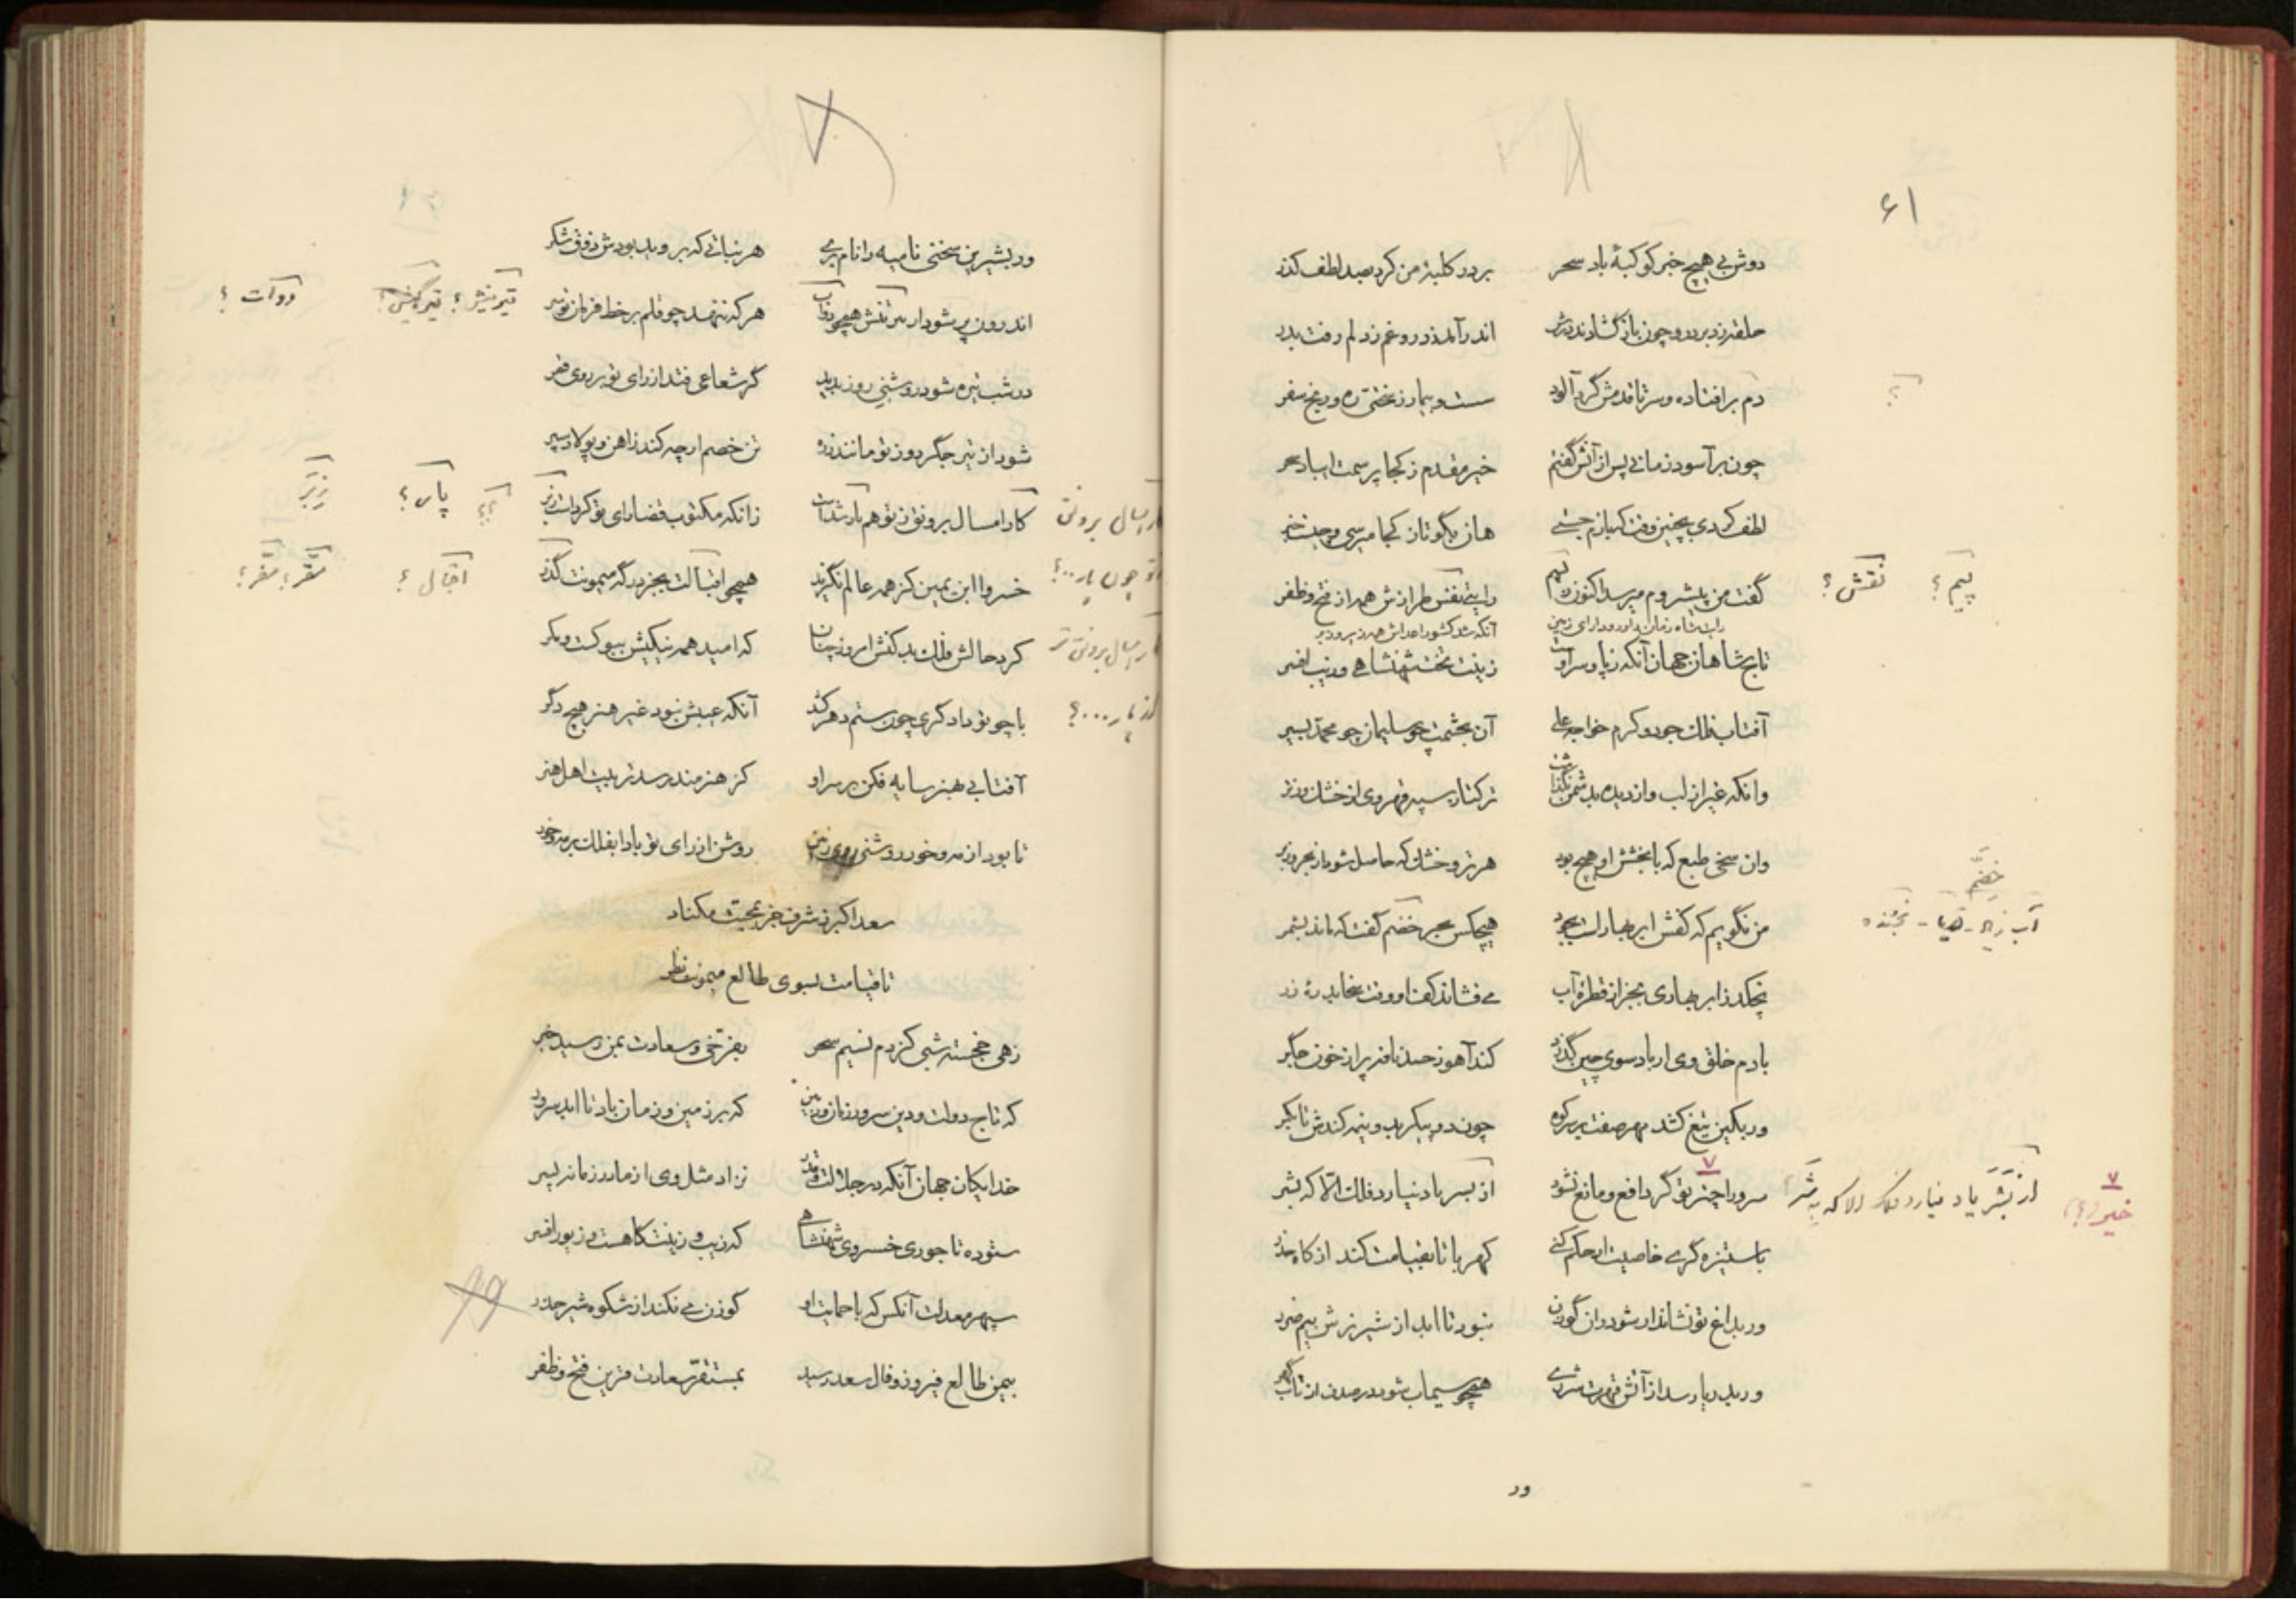 ۶۱
دوش بی هیچ خبر کوکبهٔ باد سحر بر در کلبهٔ من کرد بصد لطف گذر
حلقه زد بر در و چون باز گشادند درش اندر آمد ز در و غم ز دلم رفت بدر
دم بر افتاده و سر تا قدمش گرد آلود سست و بیمار ز سختی ره و رنج سفر
؟
چون بر آسود زمانی پس از آنش گفتم خیر مقدم ز کجا پرسمت ای باد سحر
لطف کردی بچنین وقت که بازم جستی هان بگو تا ز کجا میرسی و چیست خبر
گفت من پیشروم میرسد اکنون ز پیم رایتی نقش طرازش همه از فتح و ظفر
پیم ؟ نقش ؟
رایت شاه زمان داور و دارای زمین آنکه شد کشور اعداش همه زیر و زبر
تاج شاهان جهان آنکه ز پا و سر اوست زینت تخت شهنشاهی و زیب افسر
آفتاب فلک جود و کرم خواجه علی آن بحشمت چو سلیمان چو محمد بسیر
وانکه غیر از لب و از دیده بدشمن نگذاشت ترکتاز سپه قهر وی از خشک و ز تر
وان سخی طبع که با بخشش او هیچ بود هر تر و خشک که حاصل شود از بحر و ز بر
خضم
من نگویم که کفش ابر بهار است بجود هیچکس بحر خضم گفت که ماند بشمر
نچکد ز ابر بهاری بجز از قطرهٔ آب می فشاند کف او وقت سخا بدرهٔ زر
با دم خلق وی ار باد سوی چین گذرد کند آهو ز حسد نافه پر از خون جگر
ور بکین تیغ کشد مهر صفت بر سر کوه چون دو پیکر بدو نیمه کندش تا بکمر
سرورا چنبر تو گر دافع و مانع نشود از بسر باد نیارد فلک الا که بشر
خیر (؟)
با ستیزه گری خاصیت ار حکم کنی کهربا تا بقیامت کند از کاه حذر
ور بداغ تو نشاندار شود ران گوزن نبود تا ابد از شیر نرش بیم ضرر
ور بدریا رسد از آتش قهرت شرری همچو سیماب شود در صدف از تاب گهر
ور
ور بشیرین سخنی نامیه را نام بری هر نباتی که بروید بودش ذوق شکر
اندرون پر شود از تیر تنش همچو دوات هر که ننهد چو قلم بر خط فرمان تو سر
دوات ؟
در شب تیره شود روشنی روز پدید گر شعاعی فتد از رای تو بر روی قمر
شود از تیر جگر دوز تو مانند زره تن خصم ار چه کند ز آهن و پولاد سپر
کار امسال برونق ز تو هم پار شدست زانکه مکتوب قضا رای تو کردست ز بر
کار امسال برونق پار ؟ ؟؟
خسروا ابن یمین کز همه عالم نگزید همچو اقبالت بجز درگه میمونت گذر
اقبال ؟ مقر ؟ مفر ؟
کرد حالش فلک بد کنش امروز چنان که امید همه نیکیش بیو کست و مکر
کار امسال برونق تر
با چو تو دادگری چون ستم دهر کشد آنکه عیبش نبود غیر هنر هیچ دگر
آفتابی بهنر سایه فکن بر سر او کز هنرمند رسد تربیت اهل هنر
تا بود از مه و خور روشنی روی زمین روشن از رای تو بادا بفلک بر مه و خور
سعد اکبر ز شرف جز بمحبت مکناد
تا قیامت بسوی طالع میمونت نظر
زهی خجسته شبی کز دم نسیم سحر بفرخی و سعادت بمن رسید خبر
که تاج دولت و دین سرور زمان و زمین که بر زمین و زمان باد تا ابد سرور
خدایگان جهان آنکه در جلالت و قدر نزاد مثل وی از مادر زمانه پسر
ستوده تاجوری خسروی شهنشاهی که زیب و زینت گاهست و زیور افسر
سپهر معدلت آنکس که با حمایت او گوزن می نکند از شکوه شیر حذر
بیمن طالع فیروز و فال سعد رسید بمستقر سعادت قرین فتح و ظفر